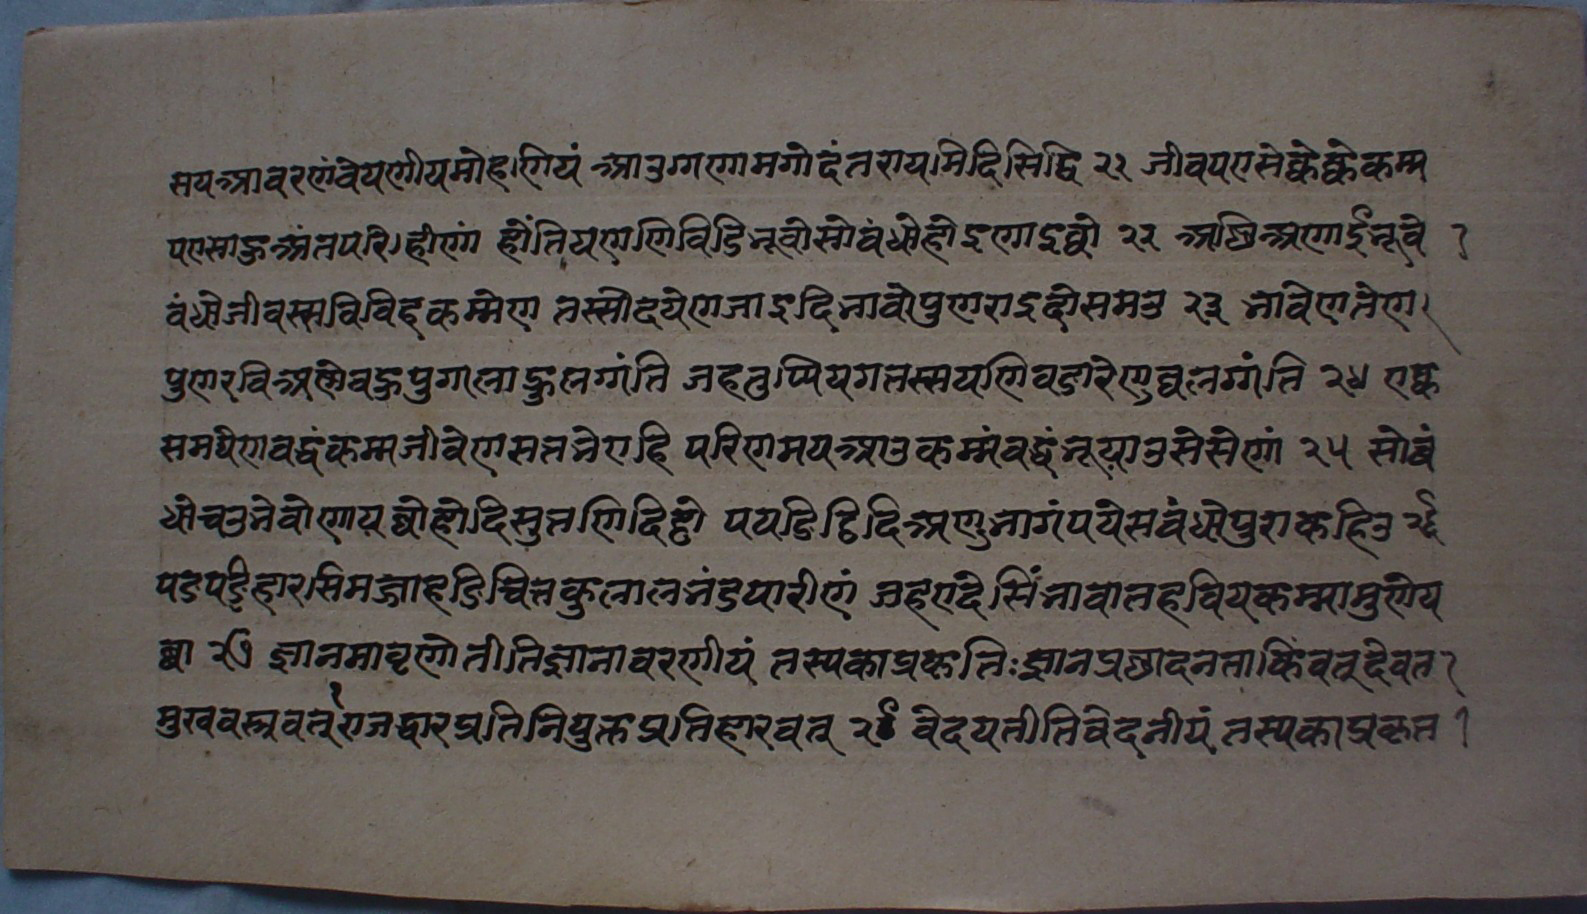 सयआवरणंवेयणीयमोहणियं आउगणामगोदंतरायमिदिसिद्धि २१ जीवपएसेक्केक्केकम्म
पएसाहुअंतपरिहीणं होंतियएणणिविडिभूवोसोबंधोहोइणाइव्वो २२ अच्छिअणाईभूवे
बंधोजीवस्सविविहकम्मेण तस्सोदयेणजाइदिभावोपुणराइदोसमउ २३ भावेणतेण
पुणरविअण्णेवहुपुग्गलाहुलग्गंति जहतुप्पियगत्तस्सयणिवडारेणुव्वलग्गंति २४ एक्क
समयेणवद्धंकम्मजीवेणसत्तभेएहि परिणमयआउकम्मंवद्धंभूयाउसेसेणं २५ सोबं
धोचउभेवोणायव्वोहोदिसुत्तणिदिट्ठो पयडिट्ठिदिअणुभागंपयेसबंधोपुराकहिउ २६
पडपडिहारसिमज्जाहडिचित्तकुलालभंडयारीणं जहएदेसिंभावातहवियकम्मामुणेय
व्वा २७ ज्ञानमावृणोतीतिज्ञानावरणीयं तस्यकाप्रकृतिः ज्ञानप्रछादनता किंवत् देवत
मुखवस्त्रवत् राजद्वारप्रतिनियुक्तप्रतिहारवत् २८ वेदयतीतिवेदनीयं तस्यकाप्रकृत